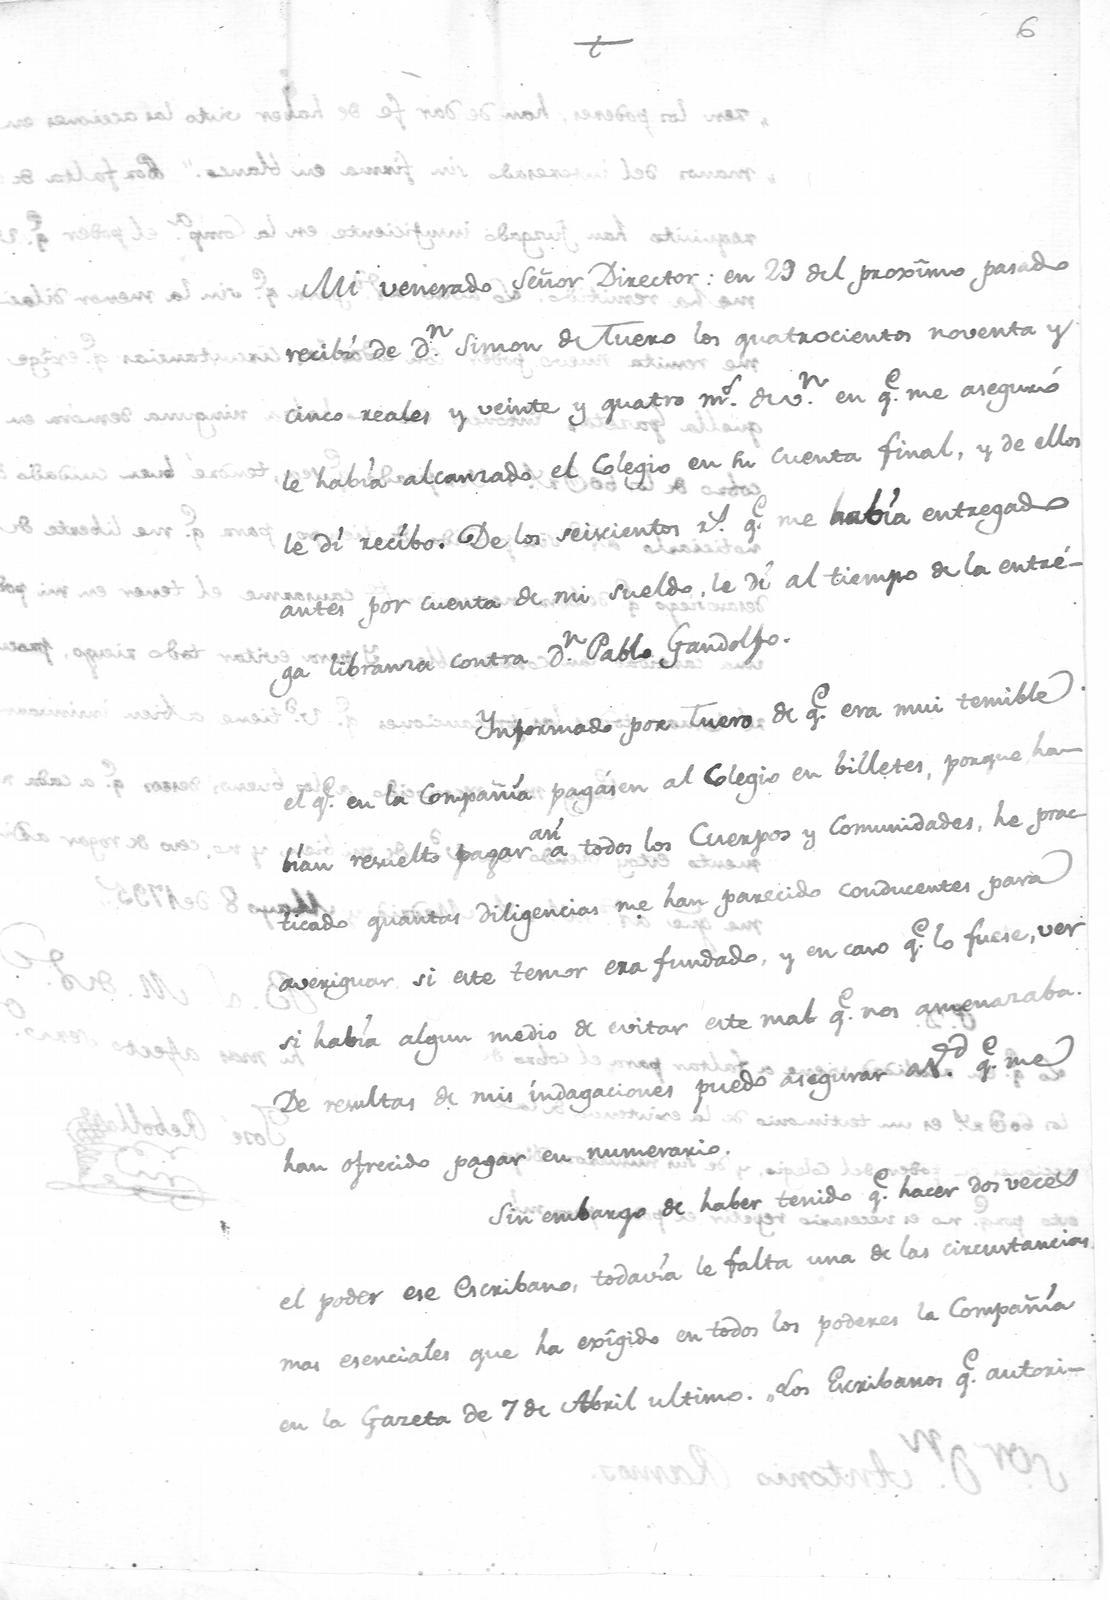 6
Mi venerado Señor Director: en 29 del proxîmo pasado
recibí de Dn. Simon de Tuero los quatrocientos noventa y
cinco reales y veinte y quatro mrs. de vn. en qe. me aseguró
le había alcanzado el Colegio en su cuenta final, y de ellos
le dí recíbo. De los seiscientos rs. qe. me había entregado
antes por cuenta de mi sueldo, le dí al tiempo de la entré-
ga libranza contra Dn. Pablo Gandolfo.
Ynformado por Tuero de qe. era mui temible
el qe. en la Compañía pagásen al Colegio en billetes, porque ha-
bían resuelto pagar así a todos los Cuerpos y Comunidades, he prac-
ticado quantas diligencias me han parecido conducentes para
averiguar si este temor era fundado, y en caso qe. lo fuese, ver
si había algun medio de evitar este mal qe. nos amenazaba.
De resultas de mis indagaciones puedo asegurar a Vd. qe. me
han ofrecido pagar en numerario.
Sin embargo de haber tenido qe. hacer dos veces
el poder ese Escribano, todavía le falta una de las circustancias
mas esenciales que ha exîgido en todos los poderes la Compañía
en la Gazeta de 7 de Abril ultimo. „Los Escribanos qe. autori-
Sor. Dn. Antonio Ramos.